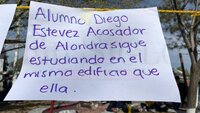 Alumno Diego
Estevez Acosador
de Alondra sigue
estudiando en el
mismo edificio que
ella.